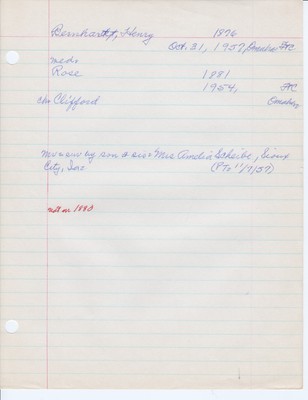 Bernhardt, Henry 1876
Oct. 31, 1957, Omaha FC
med.
Rose 1881
1954, FC
ch: Clifford Omaha
Mr surv by son & sis: Mrs Amelia Scheibe, Sioux
City, Ia (PT 11/7/57)
not on 1880